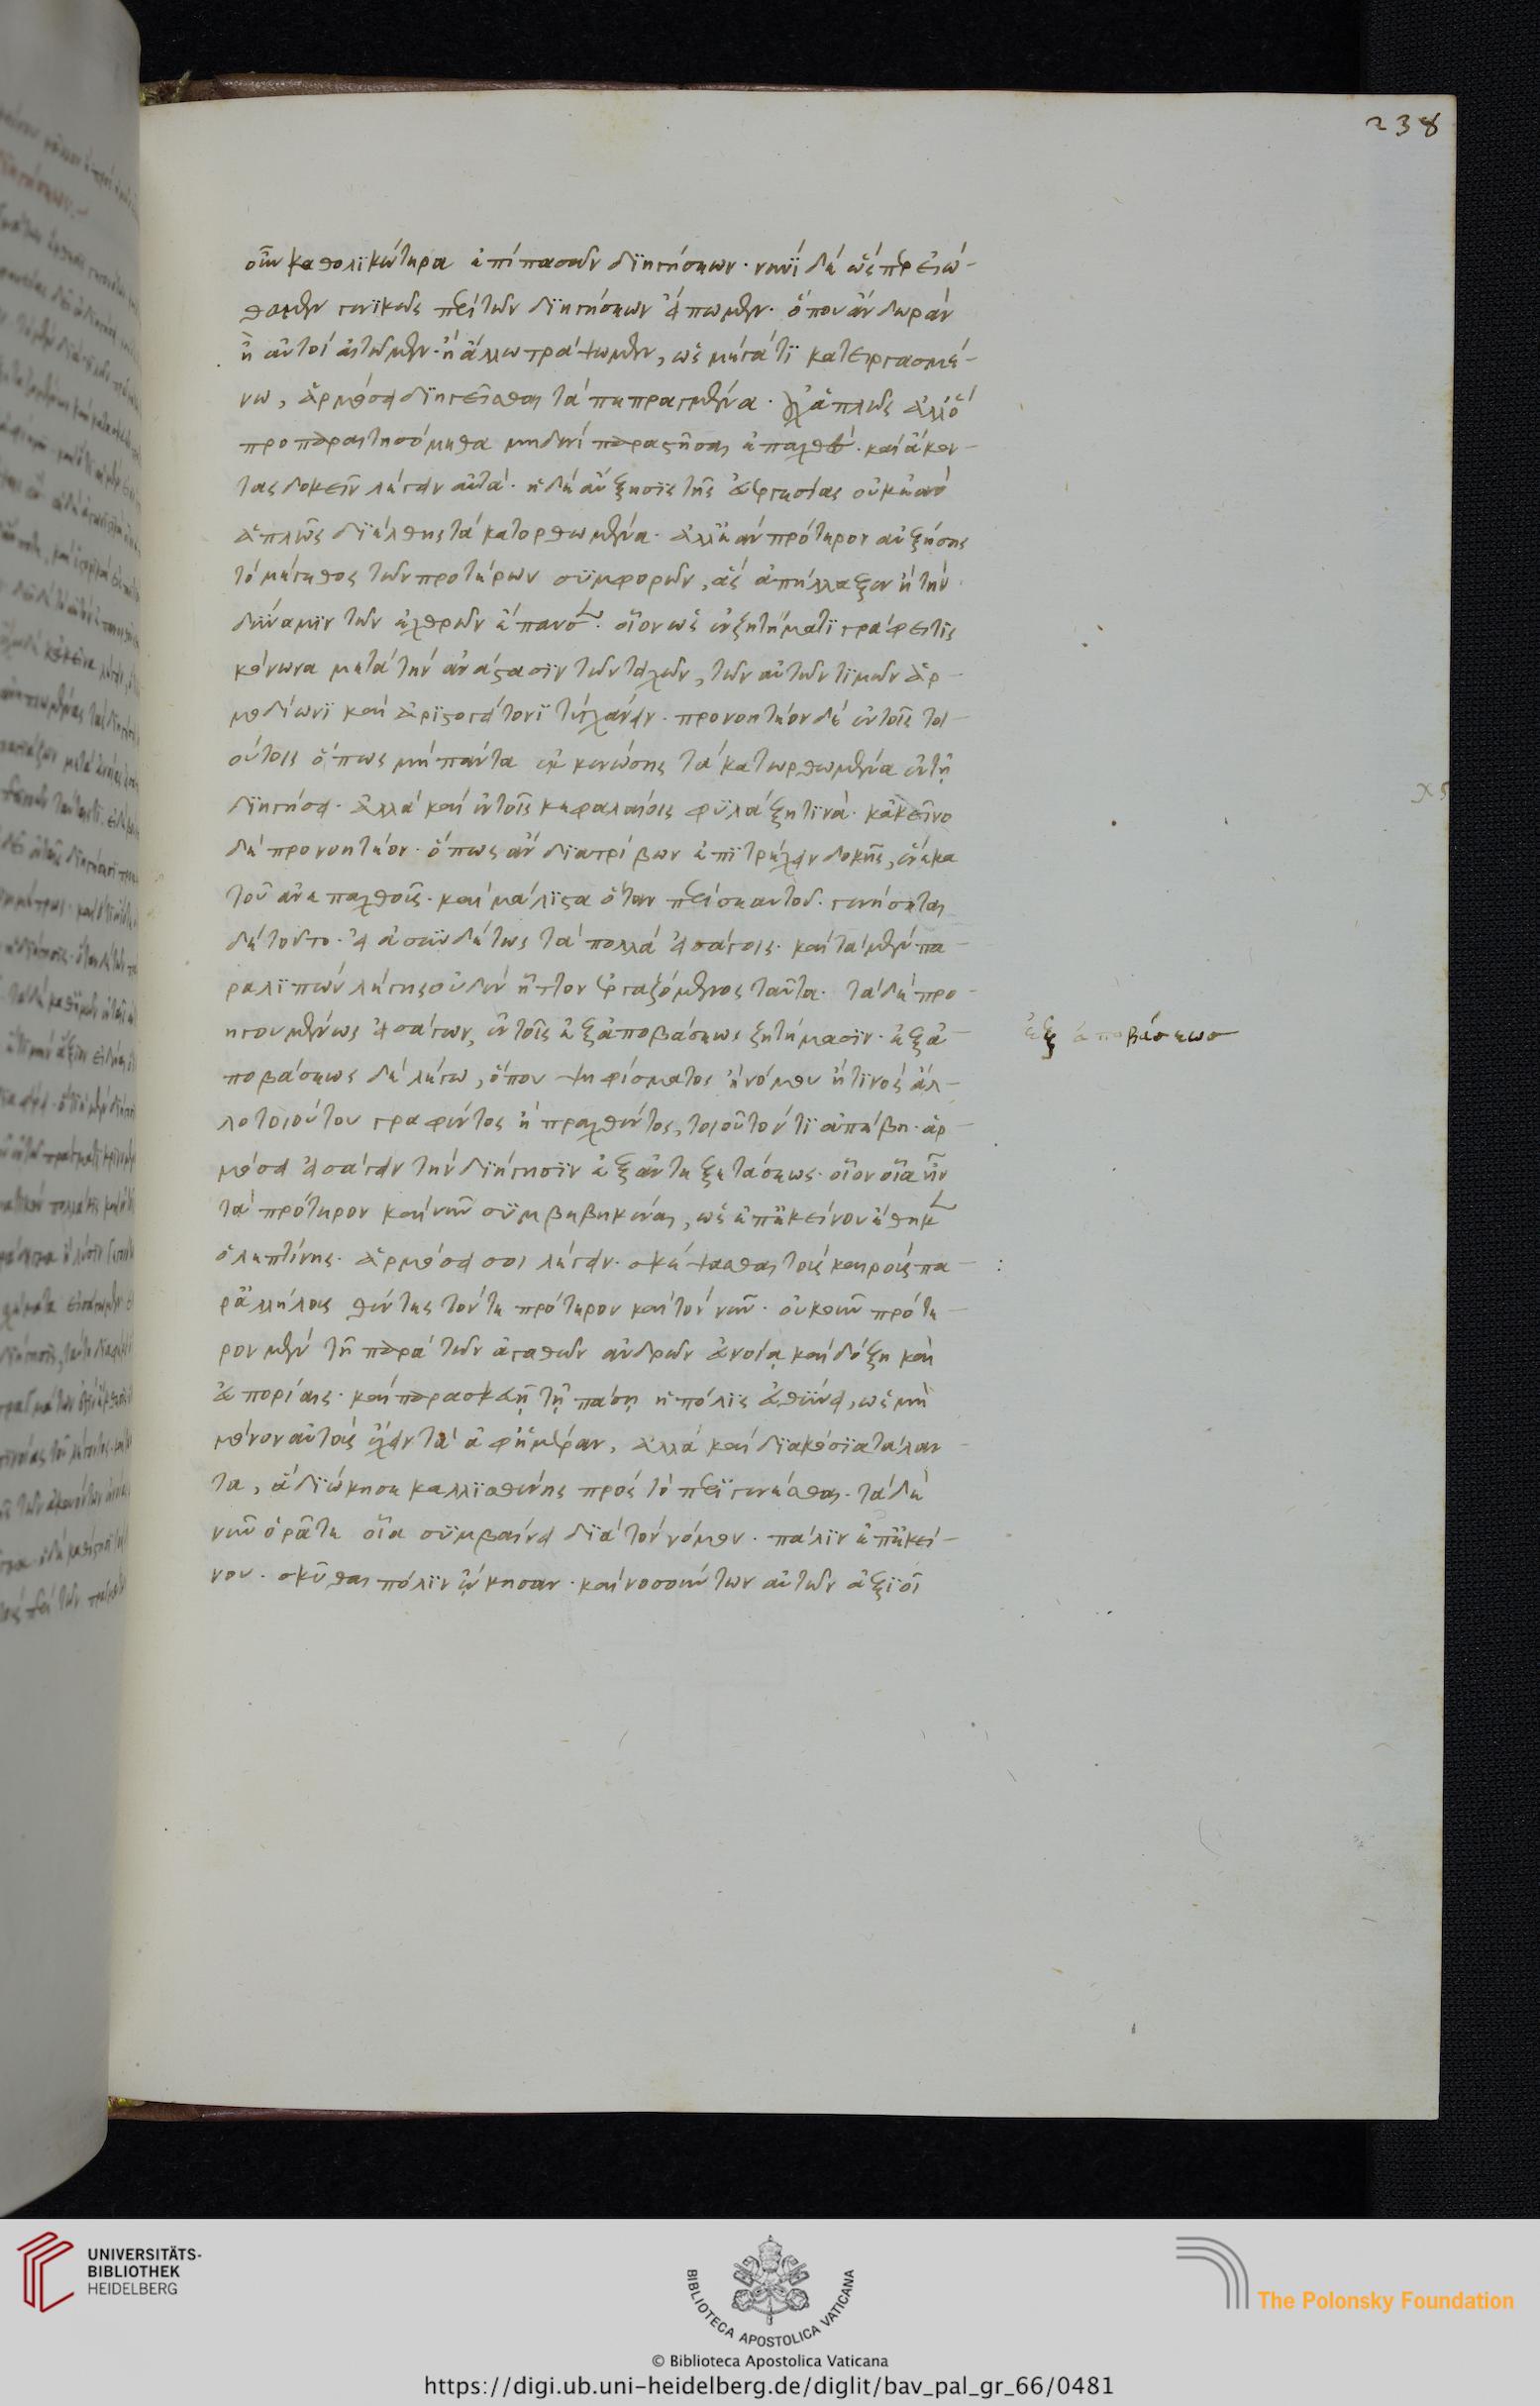 238
οὖν καθολικώτερα ἐπὶ πασῶν διηγήσεων. νυνὶ δὲ ὥσπερ εἰώ-
θαμεν γενικῶς περὶ τῶν διηγήσεων εἴπωμεν. ὅπου ἂν δωρεὰν
ἢ αὐτοὶ αἰτῶμεν. ἢ ἄλλῳ γράψωμεν, ὡς μέγα τι κατειργασμέ-
νω, ἁρμόσει διηγεῖσθαι τὰ πεπραγμένα. ἁπλῶς
προπαραιτησόμεθα μηδενὶ παραστῆσαι ἐπαχθὲς. καὶ ἄκον-
τας δοκεῖν λέγειν αὐτά. ἡ δὲ αὔξησις τῆς εὐεργεσίας οὐκ ἐὰν
ἁπλῶς διέλθης τὰ κατορθωμένα. ἀλλ' ἐὰν πρότερον αὐξήσης
τὸ μέγεθος τῶν προτέρων συμφορῶν, ἃς ἀπήλλαξεν ἢ τὴν
δύναμιν τῶν ἐχθρῶν ἔπαυσ. οἷον ὡς ἐν ζητήματι γράφει τις
κόνωνα μετὰ τὴν ἀνάστασιν τῶν τειχῶν, τῶν αὐτῶν τιμῶν ἁρ-
μοδίωνι καὶ ἀριστογείτονι τυγχάνειν. προνοητέον δὲ ἐν τοῖς τοι-
ούτοις ὅπως μὴ πάντα ἐκκενώσης τὰ κατωρθωμένα ἐν τῇ
διηγήσει. ἀλλὰ καὶ ἐν τοῖς κεφαλαίοις φυλάξης τινά. κἀκεῖνο
δὲ προνοητέον. ὅπως ἂν διατρίβων ἐπιτρέχειν δοκῆς, ἕνεκα
τοῦ ἀνεπαχθοῦς. καὶ μάλιστα ὅταν περὶ σεαυτοῦ. γενήσεται
δὲ τοῦτο. εἰ ἀσυνδέτως τὰ πολλὰ εἰσάγοις. καὶ τὰ μὲν πα-
ραλιπὼν λέγης οὐδὲν ἧττον ἐργαζόμενος ταῦτα. τὰ δὲ προ-
ηγουμένως εἰσάγων, ἐν τοῖς ἐξ ἀποβάσεως ζητήμασιν. ἐξ ἀ-
ποβάσεως δὲ λέγω, ὅπου ψηφίσματος ἢ νόμου ἤ τινος ἀλ-
λο τοιούτου γραφέντος ἢ πραχθέντος, τοιοῦτόν τι ἀπέβη. ἁρ-
μόσει εἰσάγειν τὴν διήγησιν ἐξ ἀντεξετάσεως. οἷον οἷα ἦν
τὰ πρότερον καὶ νῦν συμβεβηκέναι, ὡς ἐπ' ἐκείνου ἔθηκ
ὁ λεπτίνης. ἁρμόσει σοι λέγειν. σκέψασθαι τοὺς καιροὺς πα-
ρ' ἀλλήλους θέντες τόν τε πρότερον καὶ τὸν νῦν. οὐκοῦν πρότε-
ρον μὲν τῇ παρὰ τῶν ἀγαθῶν ἀνδρῶν εὐνοίᾳ καὶ δόξη καὶ
εὐπορίαις. καὶ παρασκευῇ τῇ πάσῃ ἡ πόλις εὐθήνει, ὡς μὴ
μόνον αὐτοὺς ἔχειν τὰ ἐφ' ἡμέραν, ἀλλὰ καὶ διακόσια τάλαν-
τα, ἃ διώκησε καλλισθένης πρὸς τὸ περιγενέσθαι. τὰ δὲ
νῦν ὁρᾶτε οἷα συμβαίνει διὰ τὸν νόμον. πάλιν ἐπ' ἐκεί-
νου. σκύθαι πόλιν ᾤκησαν. καὶ νοσούντων αὐτῶν ἀξιοῖ
ἐξ ἀποβάσεως
UNIVERSITÄTS-
BIBLIOTHEK
HEIDELBERG
BIBLIOTECA APOSTOLICA VATICANA
© Biblioteca Apostolica Vaticana
The Polonsky Foundation
https://digi.ub.uni-heidelberg.de/diglit/bav_pal_gr_66/0481